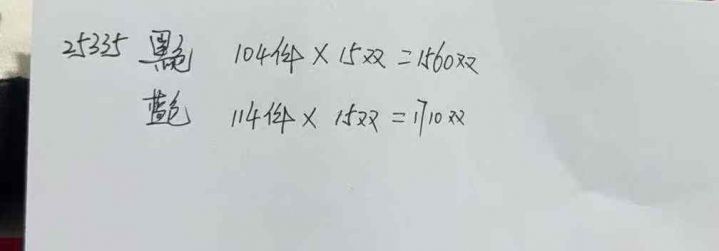 25335 黑色 104件×15双=1560双
蓝色 114件×15双=1710双